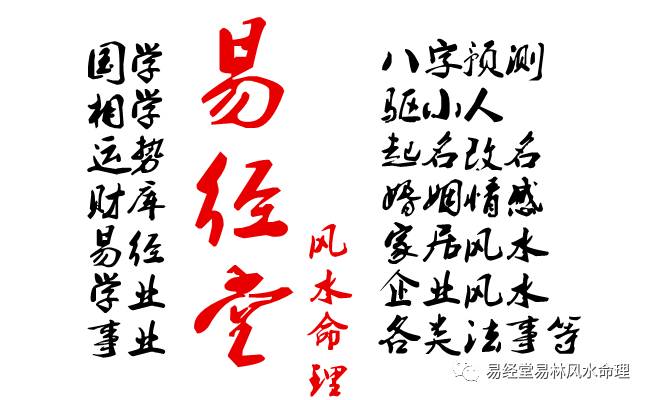 国学
相学
运势
财库
易经
学业
事业
易经堂
风水命理
八字预测
驱小人
起名改名
婚姻情感
家居风水
企业风水
各类法事等
易经堂易林风水命理